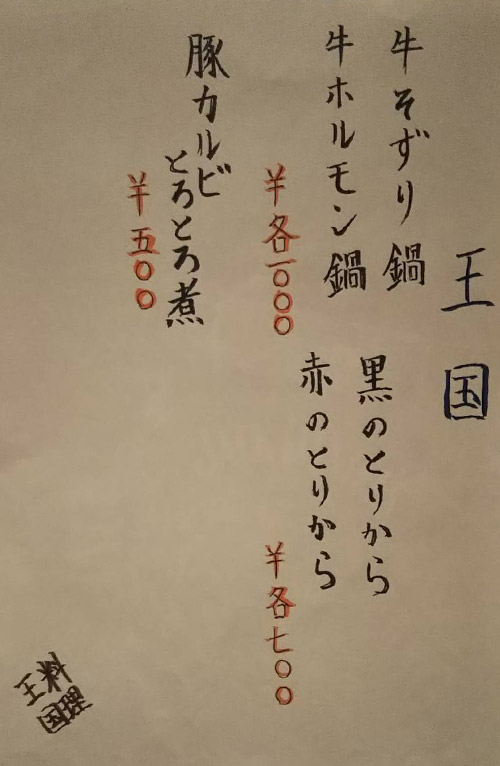 王国
牛そずり鍋
牛ホルモン鍋
¥各一〇〇〇
黒のとりから
赤のとりから
¥各七〇〇
豚カルビ
とろとろ煮
¥五〇〇
料理
王国